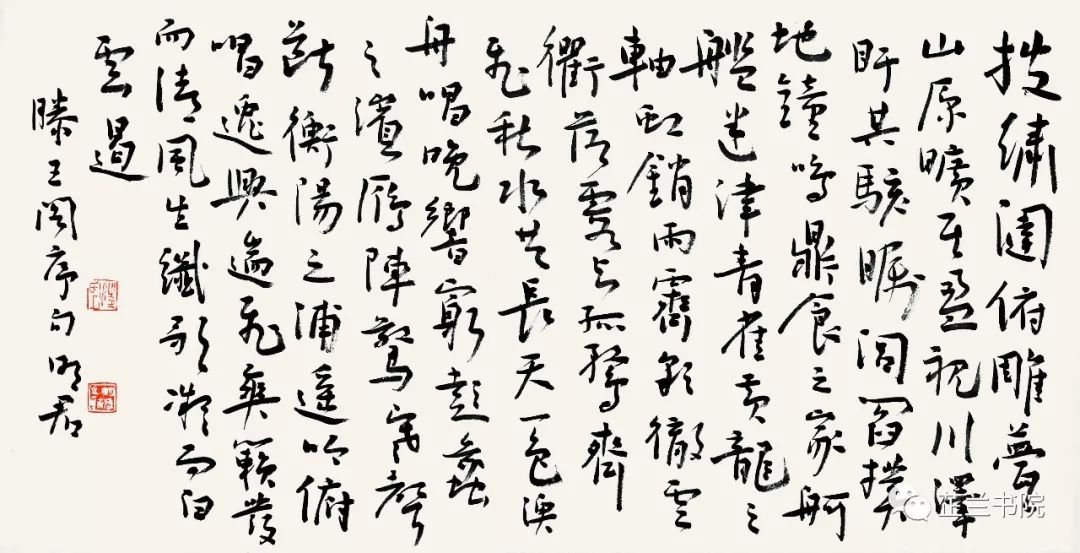 披繡闥俯雕甍
山原曠其盈視川澤
盱其駭矚閭閻撲
地鐘鳴鼎食之家舸
艦迷津青雀黃龍之
軸虹銷雨霽彩徹雲
衢落霞與孤鶩齊
飛秋水共長天一色漁
舟唱晚響窮彭蠡
之濱雁陣驚寒聲
斷衡陽之浦遙吟俯
唱逸興遄飛爽籟發
而清風生纖歌凝而白
雲遏
滕王閣序句明君
芷兰书院